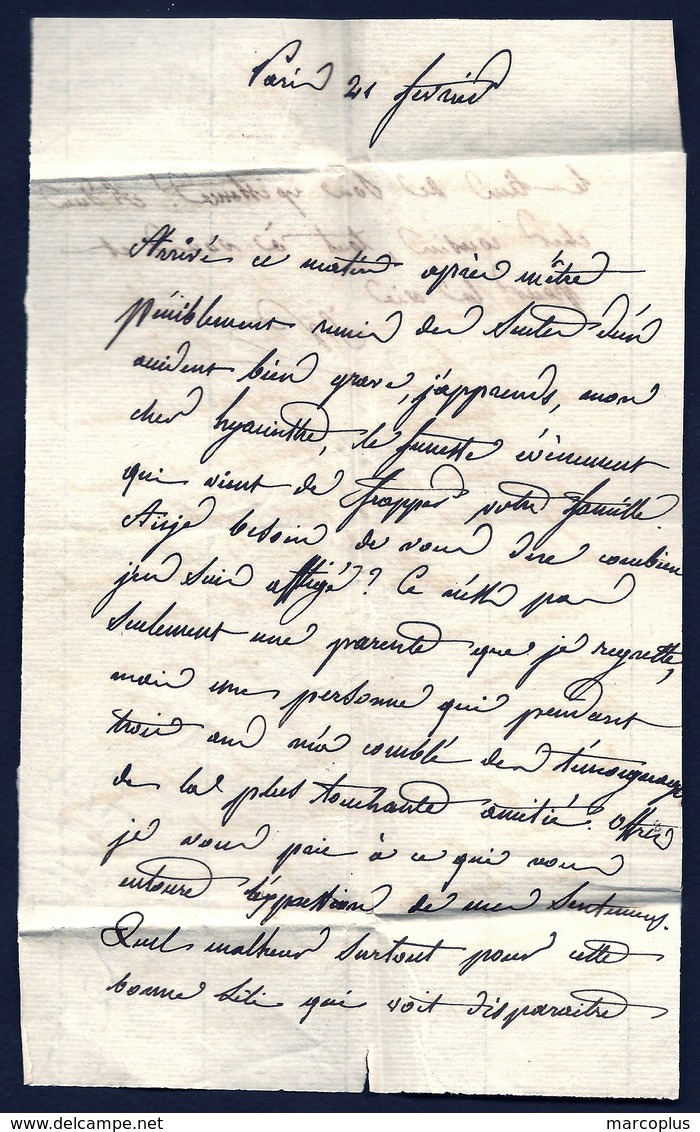 Paris 21 février
Arrivé ce matin après m'être
péniblement remis des suites d'un
accident bien grave, j'apprends, mon
cher hyacinthe, le funeste évènement
qui vient de frapper votre famille
Ai-je besoin de vous dire combien
j'en suis affligé? Ce n'est pas
seulement une parente que je regrette,
mais une personne qui pendant
trois ans m'a comblé des témoignages
de la plus touchante amitié. Offrez
je vous prie à ce qui vous
entoure l'expression de mes sentimens.
Quel malheur surtout pour cette
bonne qui voit disparaitre
marcoplus